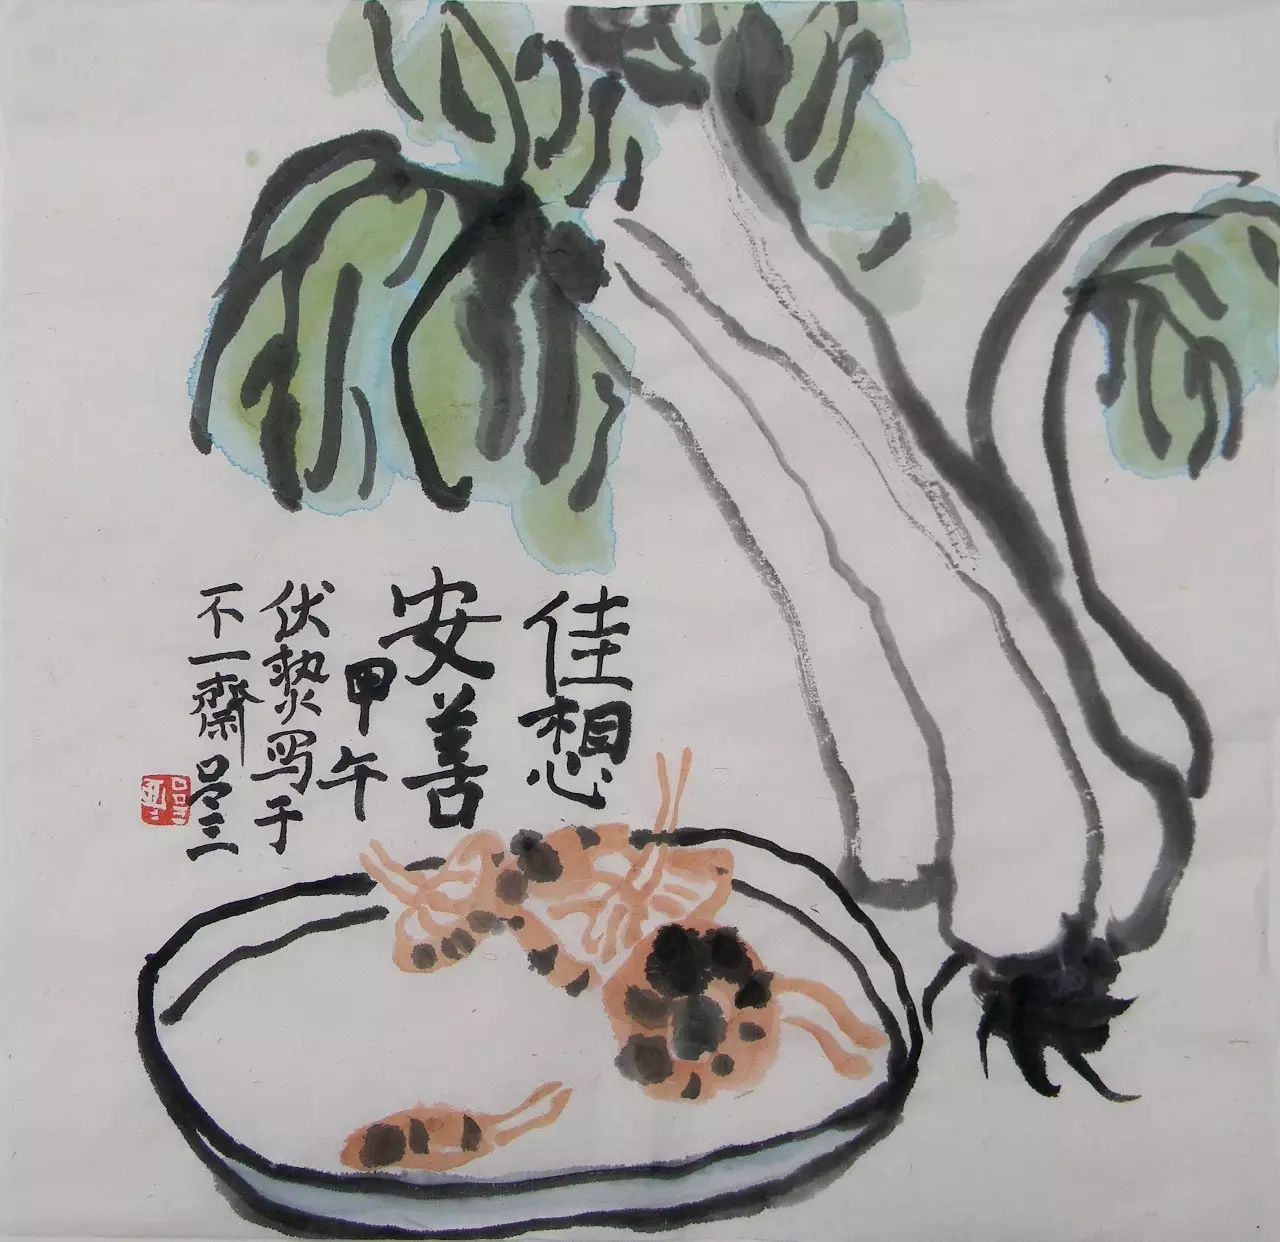 佳想
安善
甲午
伏熱写于
不一齋吕三